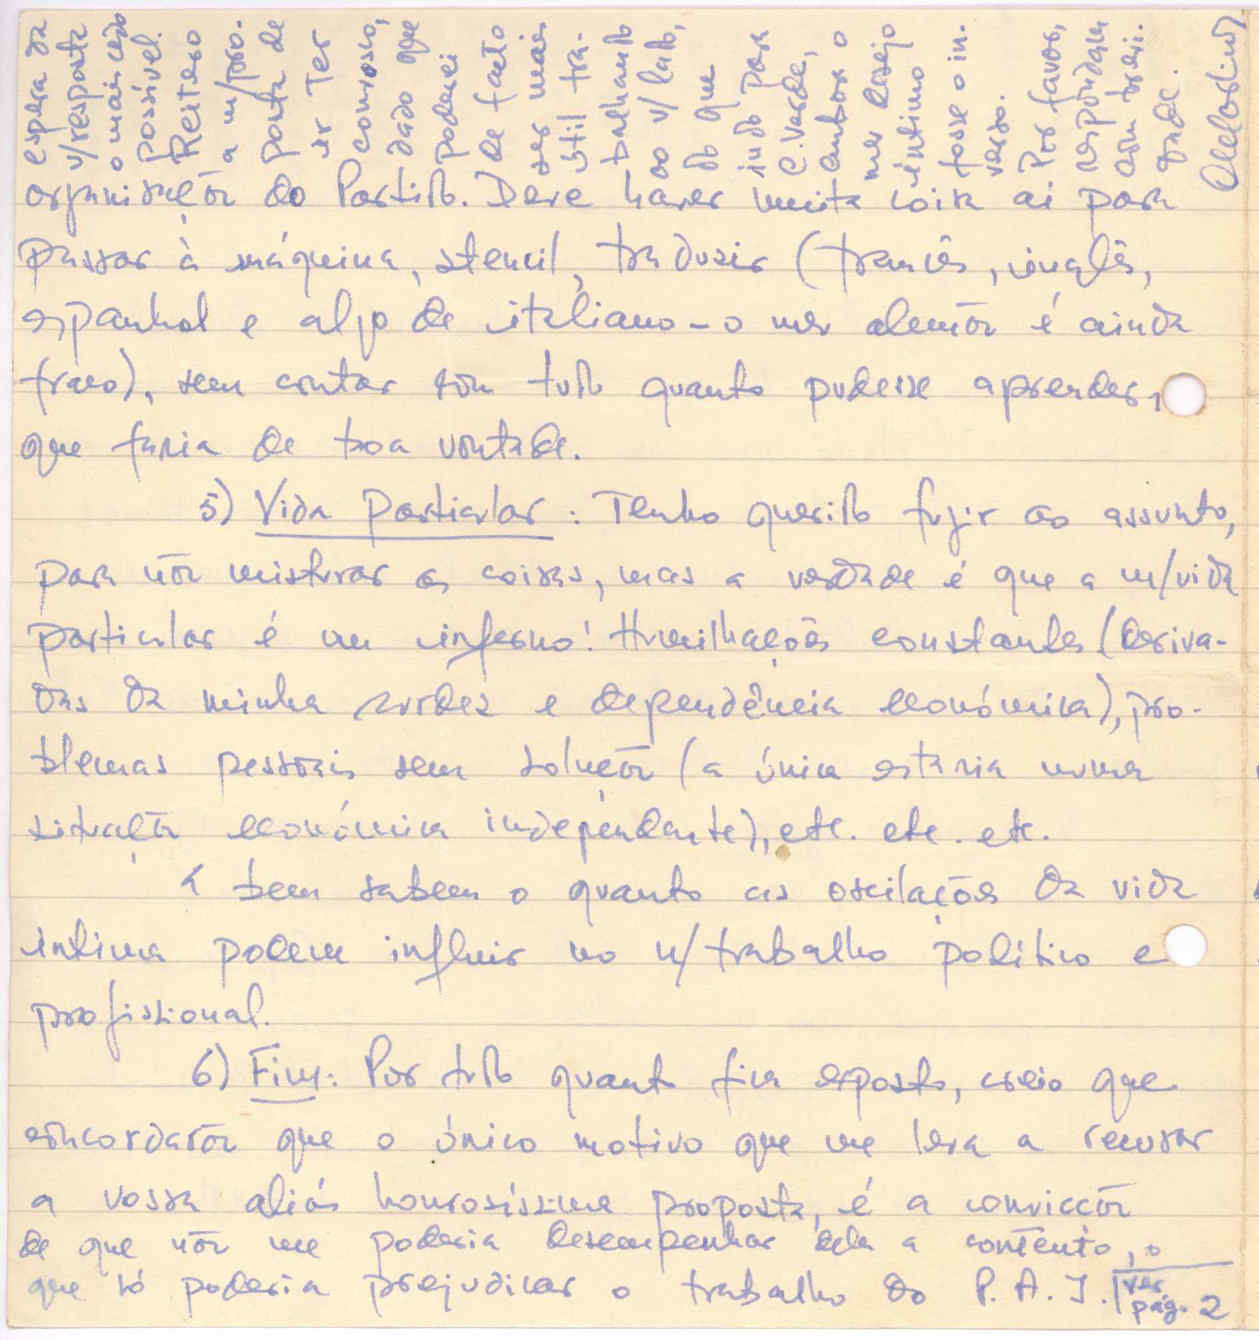 organização do Partido. Deve haver muita coisa aí para
passar à máquina, stencil, traduzir (francês, inglês,
espanhol e algo de italiano – o meu alemão é ainda
fraco), sem contar com tudo quanto pudesse aprender,
que faria de boa vontade.
5) Vida particular: Tenho querido fugir ao assunto,
para não misturar as coisas, mas a verdade é que a m/vida
particular é um inferno! Humilhações constantes (deriva-
das da minha surdez e dependência económica), pro-
blemas pessoais sem solução (a única estaria numa
situação económica independente), etc. etc. etc.
E bem sabem o quanto as oscilações da vida
íntima podem influir no n/trabalho político e
profissional.
6) Fim: Por tudo quanto fica exposto, creio que
concordarão que o único motivo que me leva a recusar
a vossa aliás honrosíssima proposta, é a convicção
de que não me poderia desempenhar dela a contento, o
que só poderia prejudicar o trabalho do P.A.I.
ver
pág. 2
espera da
v/resposta
o mais cedo
possível.
Reitero
a m/pro-
posta de
ir ter
convosco,
dado que
poderei
de facto
ser mais
útil tra-
balhando
ao v/lado,
do que
indo para
C. Verde,
embora o
meu desejo
íntimo
fosse o in-
verso.
Por favor,
respondam
com brevi-
dade.